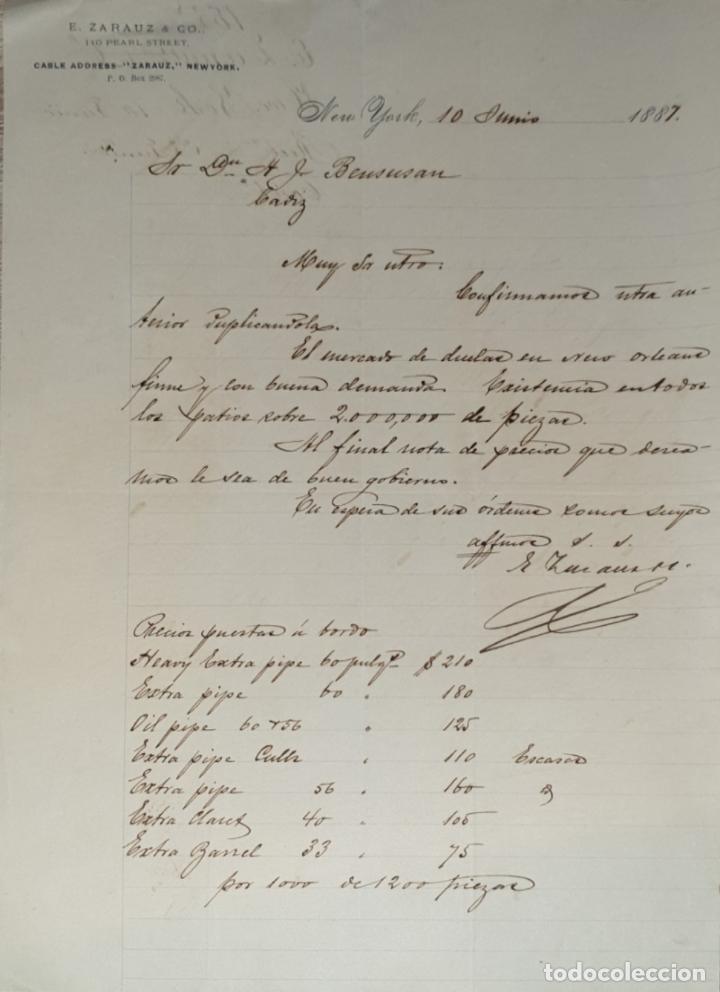 E. ZARAUZ & CO.,
110 PEARL STREET,
CABLE ADDRESS—"ZARAUZ," NEW YORK.
P. O. Box 2987.
New York, 10 Junio 1887.
Sr Dn H J Bensusan
Cadiz
Muy Sr ntro:
Confirmamos ntra an-
terior duplicandola.
El mercado de duelas en New Orleans
firme y con buena demanda. Existencia en todos
los patios sobre 2.000,000 de piezas.
Al final nota de precios que desea-
mos le sea de buen gobierno.
En espera de sus órdenes somos suyos
affmos S. S.
E Zarauz Co.
Precios puestas á bordo
Heavy Extra pipe 60 pulgs $ 210
Extra pipe 60 " 180
Oil pipe 60 x 56 " 125
Extra pipe Culls " 110 Escasas
Extra pipe 56 " 160
Extra Claret 40 " 105
Extra Barrel 33 " 75
por 1000 de 1200 piezas
todocoleccion